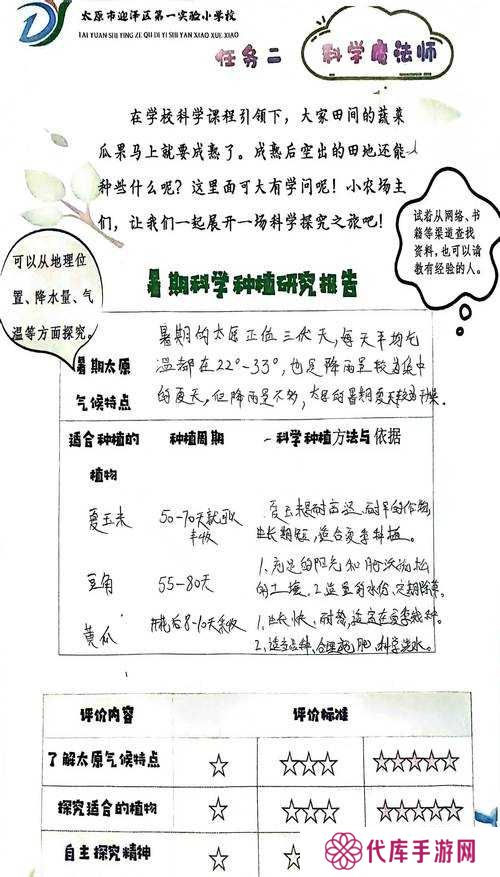 太原市迎泽区第一实验小学校
TAI YUAN SHI YING ZE QU DI YI SHI YAN XIAO XUE XIAO
任务二
科学魔法师
在学校科学课程引领下，大家田间的蔬菜
瓜果马上就要成熟了。成熟后空出的田地还能
种些什么呢？这里面可大有学问呢！小农场主
们，让我们一起展开一场科学探究之旅吧！
试着从网络、书
籍等渠道查找
资料，也可以请
教有经验的人。
可以从地理位
置、降水量、气
温等方面探究。
暑期科学种植研究报告
暑期太原
气候特点
暑期的太原正值三伏天，每天平均气
温都在22°-33°，也是降雨量较为集中
的夏天，但降雨量不多，太原的暑期夏天较为干燥。
适合种植的
植物
种植周期
科学种植方法与依据
夏玉米
50-70天就可以
丰收
生长期短，适合夏季种植。
豆角
55-80天
1、充足的阳光和肥沃疏松
的土壤。2、适量的水份、定期除草。
黄瓜
开花后8-10天采收
1、生长快、耐热、适宜在夏季栽种。
2、适当品种、合理施肥、科学浇水。
评价内容
评价标准
了解太原气候特点
☆
☆☆☆
☆☆☆☆☆
探究适合的植物
☆
☆☆☆
☆☆☆☆☆
自主探究精神
☆
☆
代库手游网